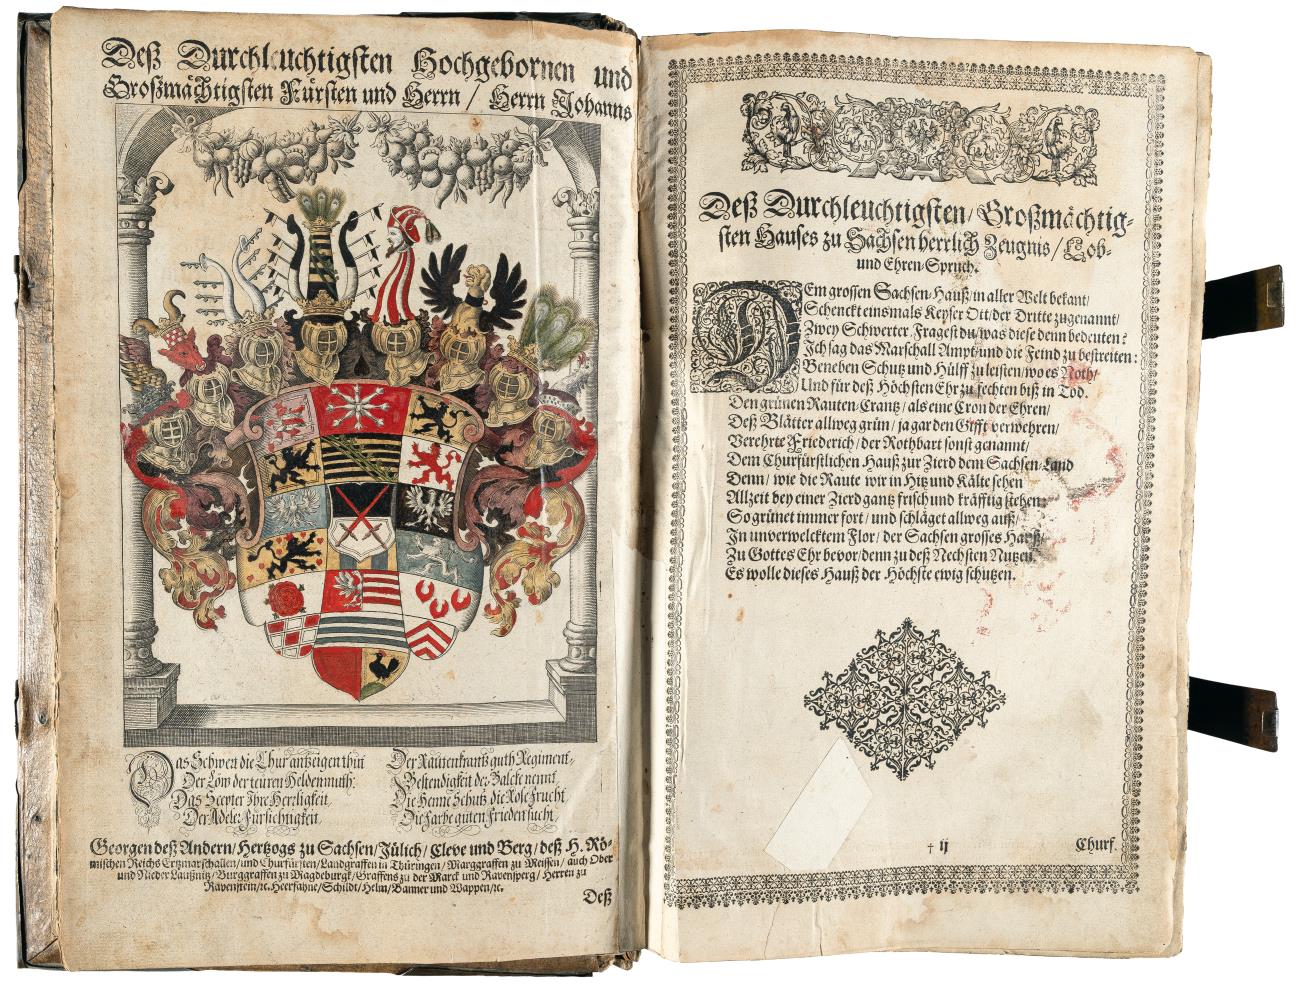 Deß Durchleuchtigsten Hochgebornen und
Großmächtigsten Fürsten und Herrn / Herrn Johanns
Das Schwert die Chur antzeigen thut
Der Löw der teüren Heldenmuth.
Das Scepter Ihre Herrligkeit
Der Adeler Fürsichtigkeit,
Der Rautenkrantz guth Regiment,
Bestendigkeit der Balcke nennt
Die Henne Schutz die Rose Frucht
Die Farbe guten Frieden sucht,
Georgen deß Andern / Hertzogs zu Sachsen / Jülich / Cleve und Berg / deß H. Rö-
mischen Reichs Ertzmarschallen / und Churfürsten / Landgraffen in Thüringen / Marggraffen zu Meissen / auch Ober
und Nieder Laußnitz / Burggraffen zu Magdeburgk / Graffens zu der Marck und Ravensperg / Herren zu
Ravenstein / ec. Heerfahne / Schildt / Helm / Banner und Wappen / ec.
Deß
Deß Durchleuchtigsten / Großmächtig-
sten Hauses zu Sachsen herrlich Zeugnis / Lob-
und Ehren-Spruch.
DEm grossen Sachsen-Hauß / in aller Welt bekant /
Schenckt einsmals Keyser Ott / der Dritte zugenannt /
Zwey Schwerter. Fragest du / was diese denn bedeuten?
Ich sag das Marschall Ampt / und die Feind zu bestreiten:
Beneben Schutz und Hülff zu leisten / wo es Noth /
Und für deß Höchsten Ehr zu fechten biß in Tod.
Den grünen Rauten-Crantz / als eine Cron der Ehren /
Deß Blätter allweg grün / ja gar den Gifft verwehren /
Verehrte Friederich / der Rothbart sonst genannt /
Dem Churfürstlichen Hauß zur Zierd dem Sachsen-Land
Denn / wie die Raute wir in Hitz und Kälte sehen
Allzeit bey einer Zierd gantz frisch und kräfftig stehen:
So grünet immer fort / und schläget allweg auß /
In unverwelcktem Flor / der Sachsen grosses Hauß /
Zu Gottes Ehr bevor / denn zu deß Nechsten Nutzen.
Es wolle dieses Hauß der Höchste ewig schützen.
† ij
Churf.